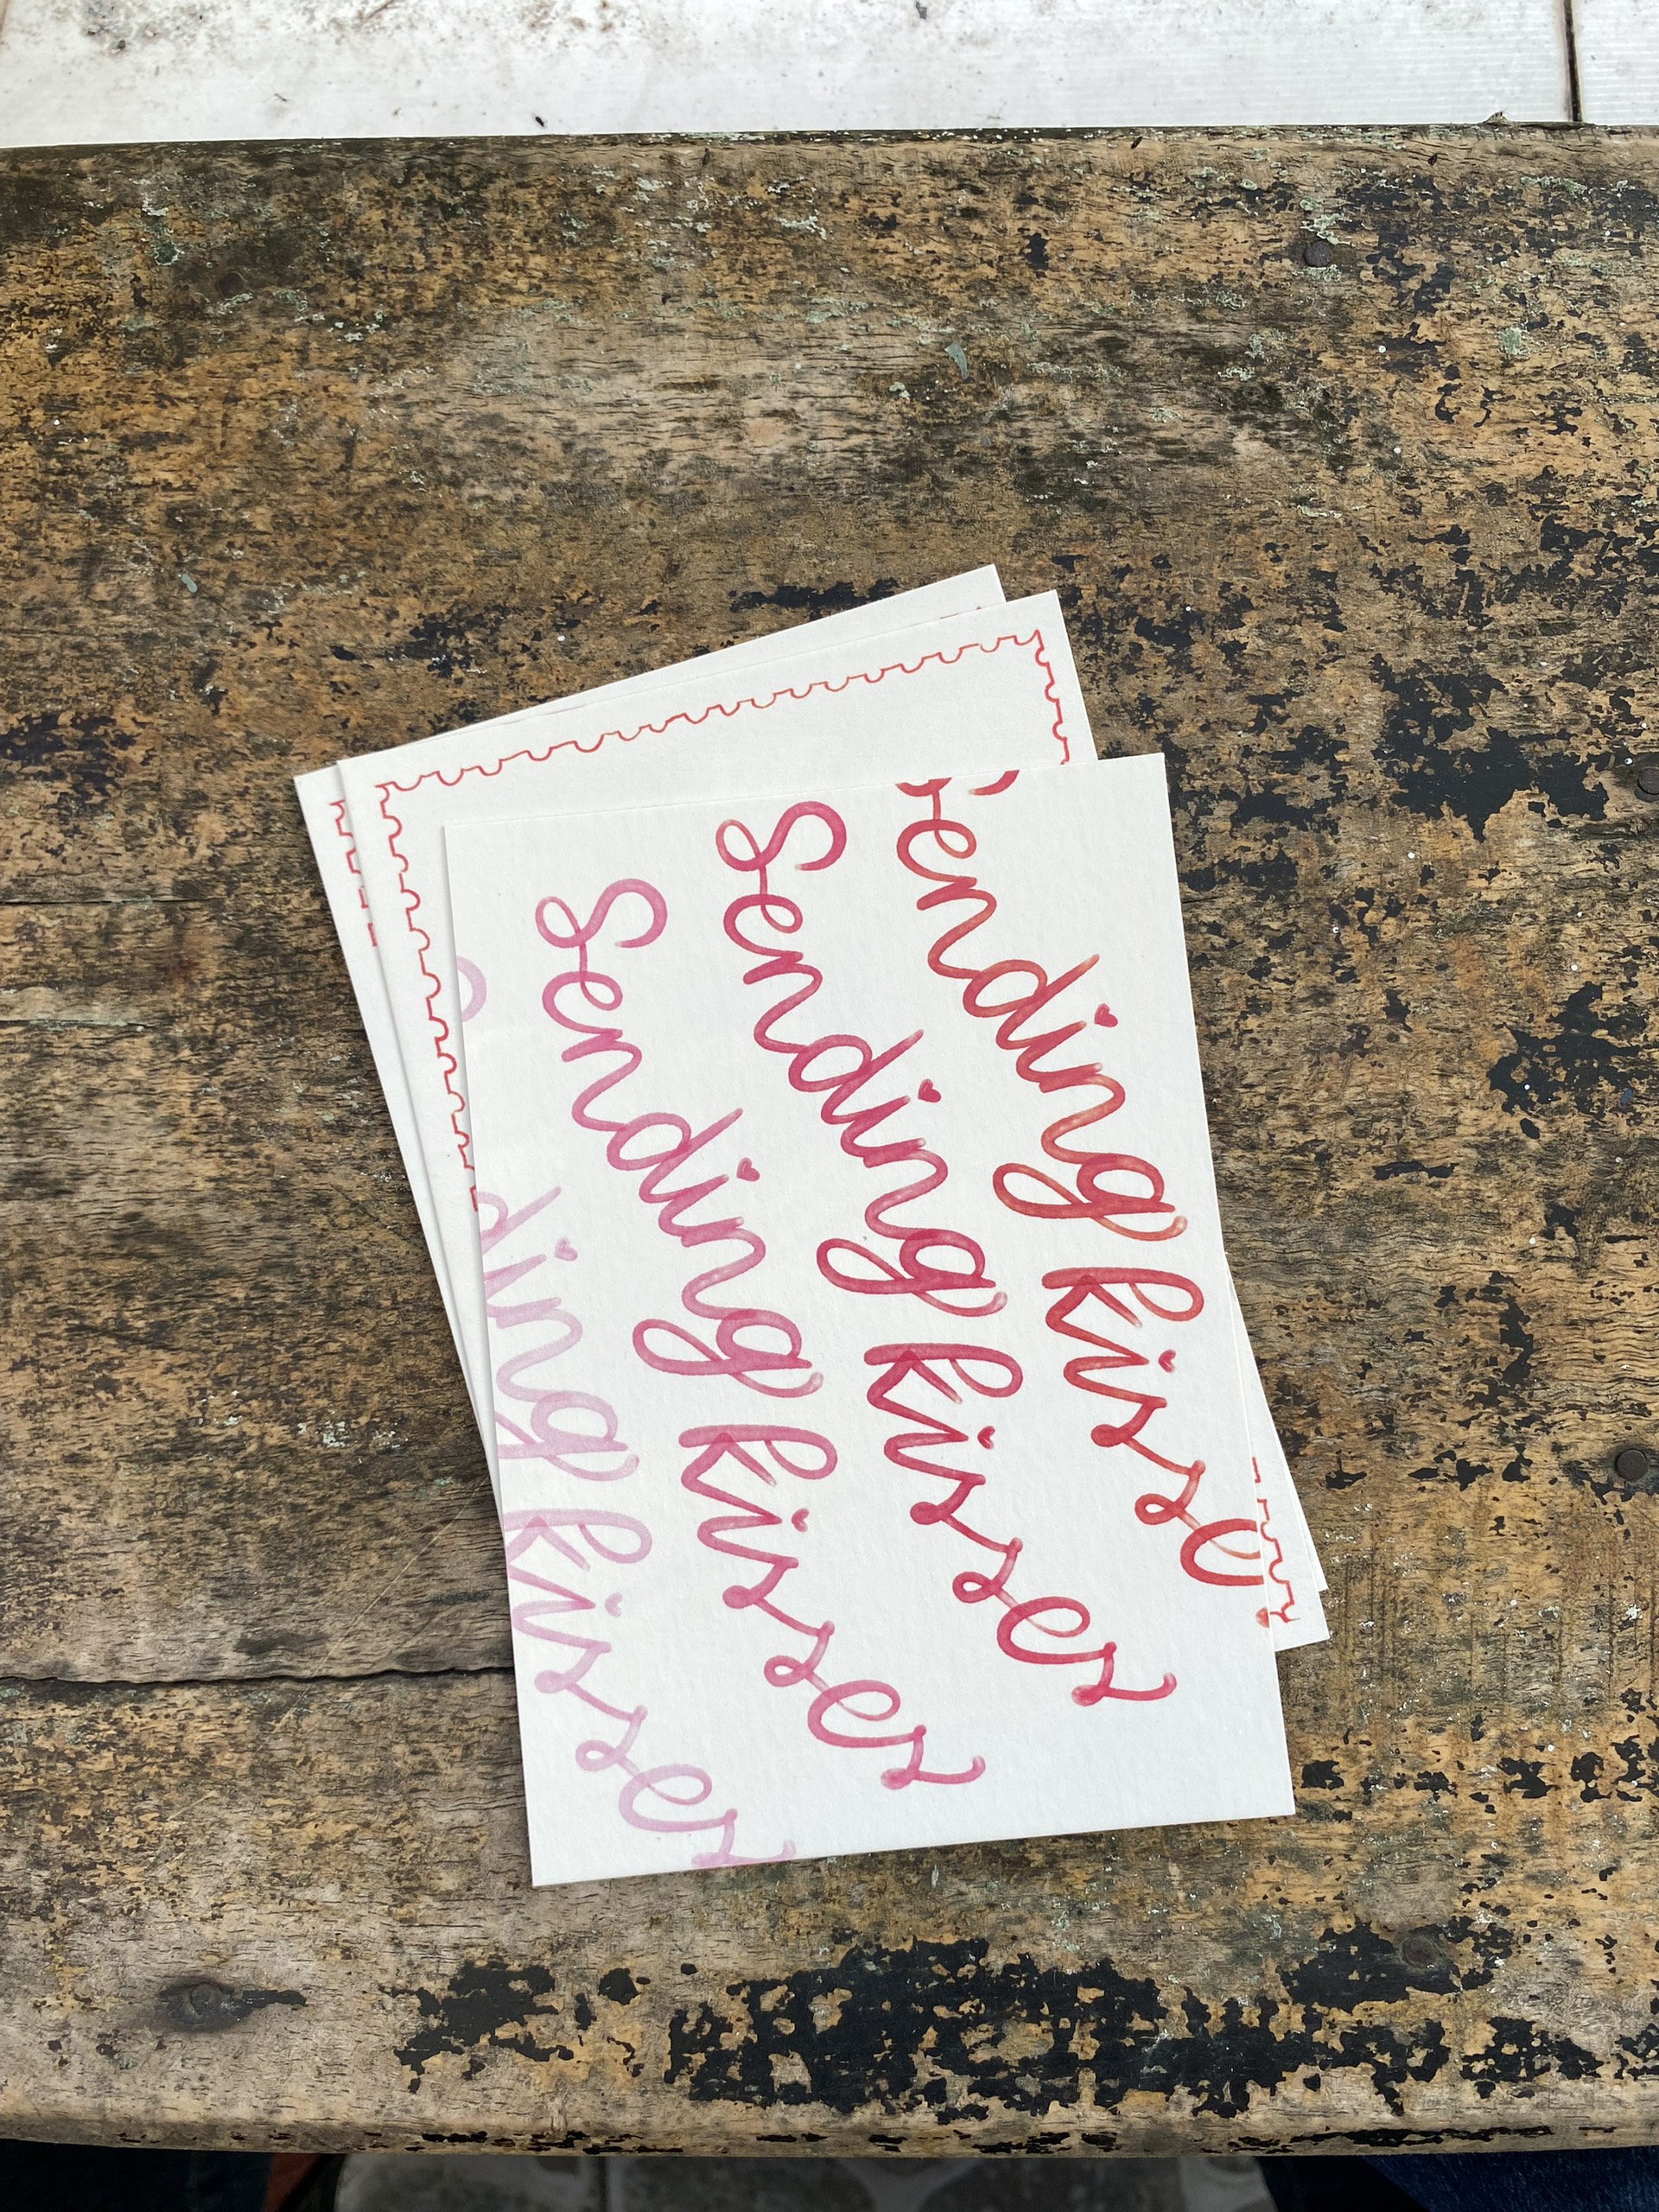 Sending kisse
Sending kisses
Sending kisses
ding kisses